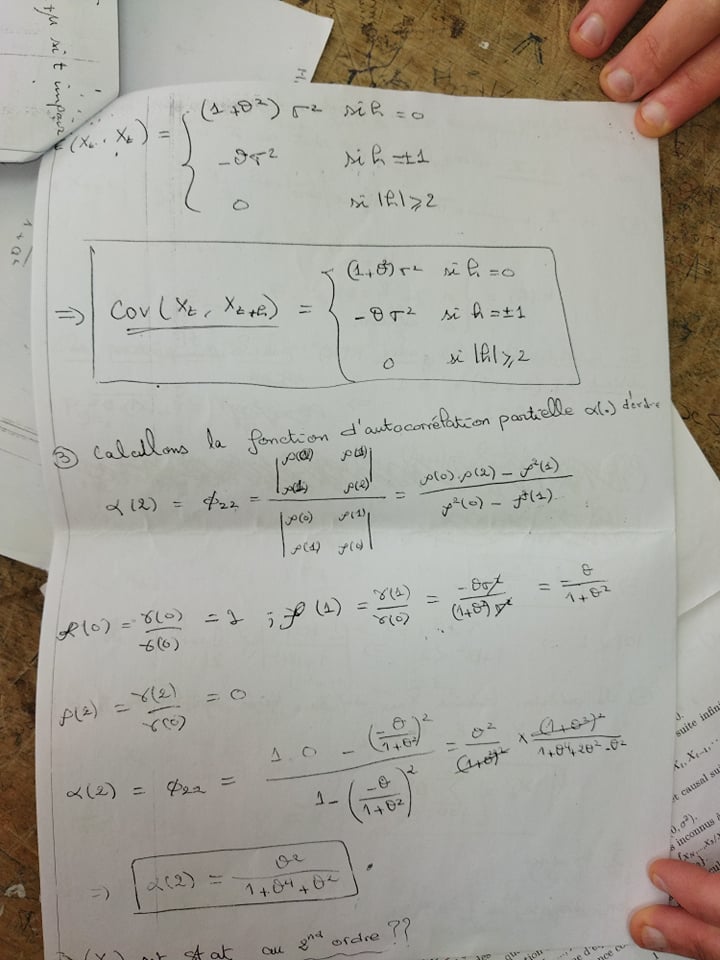 (X_t, X_t) = { (1+θ²)σ² si h = 0
-θσ² si h = ±1
0 si |h| ≥ 2
⇒ Cov(X_t, X_{t+h}) = { (1+θ²)σ² si h = 0
-θσ² si h = ±1
0 si |h| ≥ 2
③ Calculons la fonction d'autocorrélation partielle α(.) d'ordre
α(2) = ϕ₂₂ = |ρ(0) ρ(1) ; ρ(1) ρ(2)| / |ρ(0) ρ(1) ; ρ(1) ρ(0)| = (ρ(0).ρ(2) - ρ²(1)) / (ρ²(0) - ρ²(1))
ρ(0) = γ(0)/γ(0) = 1 ; ρ(1) = γ(1)/γ(0) = -θσ²/((1+θ²)σ²) = -θ/(1+θ²)
ρ(2) = γ(2)/γ(0) = 0
α(2) = ϕ₂₂ = (1.0 - (-θ/(1+θ²))²) / (1 - (-θ/(1+θ²))²) = θ²/(1+θ²)² × (1+θ²)²/(1+θ⁴+2θ²-θ²)
⇒ α(2) = θ²/(1+θ⁴+θ²) .
stat au 2nd ordre ??
si t impair
suite infini
X₁, X₋₁, ..
et causal sui
inconnus à